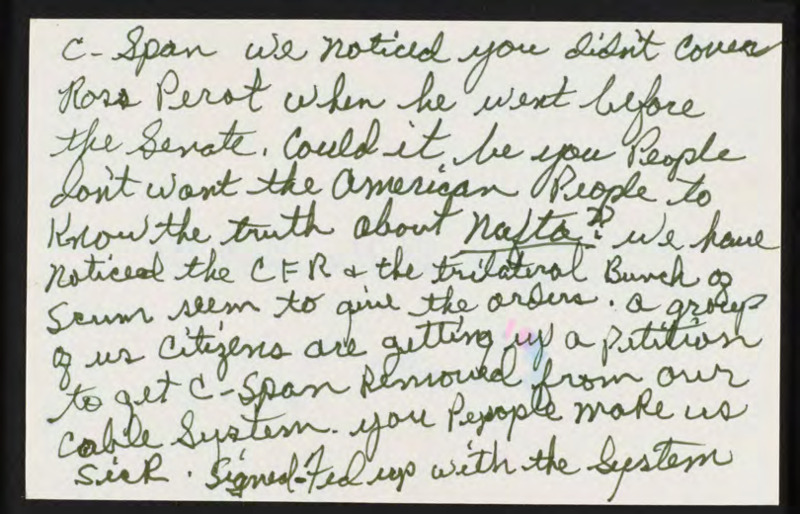 C-Span we noticed you didn't cover
Ross Perot when he went before
the Senate. Could it be you People
don't want the American People to
Know the truth about Nafta? we have
noticed the CFR & the trilateral Bunch of
Scum seem to give the orders. a group
of us Citizens are getting up a Petition
to get C-Span Removed from our
Cable System. you Pepople make us
Sick. Signed-Fed up with the System